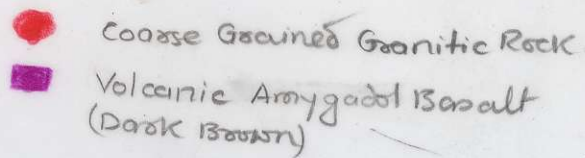 Coarse Grained Granitic Rock
Volcanic Amygadol Basalt
(Dark Brown)